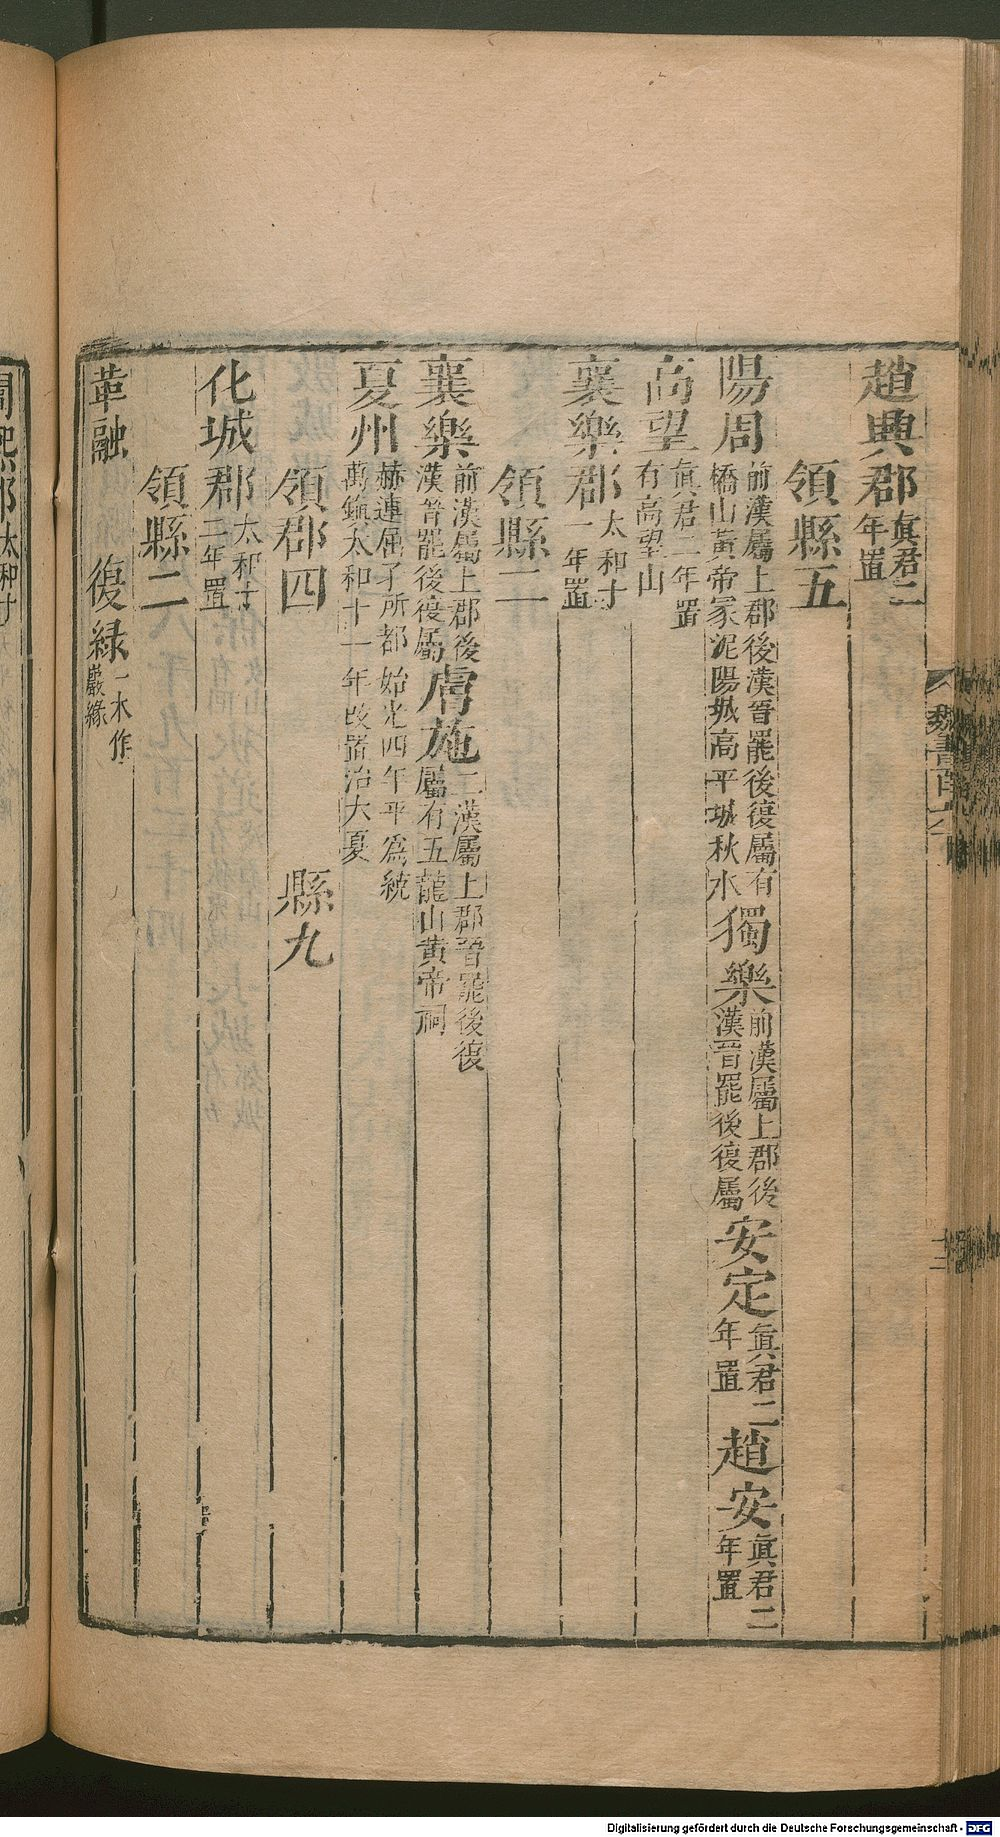 趙興郡眞君二年置
領縣五
陽周前漢屬上郡後漢晉罷後復屬有橋山黃帝冢泥陽城高平城秋水獨樂前漢屬上郡後漢晉罷後復屬安定眞君二年置趙安眞君二年置
高望眞君二年置有高望山
襄樂郡太和十一年置
領縣二
襄樂前漢屬上郡後漢晉罷後復屬膚施二漢屬上郡晉罷後復屬有五龍山黃帝祠
夏州赫連屈孑所都始光四年平爲統萬鎭太和十一年改置治大夏
領郡四 縣九
化城郡太和十二年置
領縣二
革融 復緑一本作巖緣
太和十
魏書
Digitalisierung gefördert durch die Deutsche Forschungsgemeinschaft - DFG